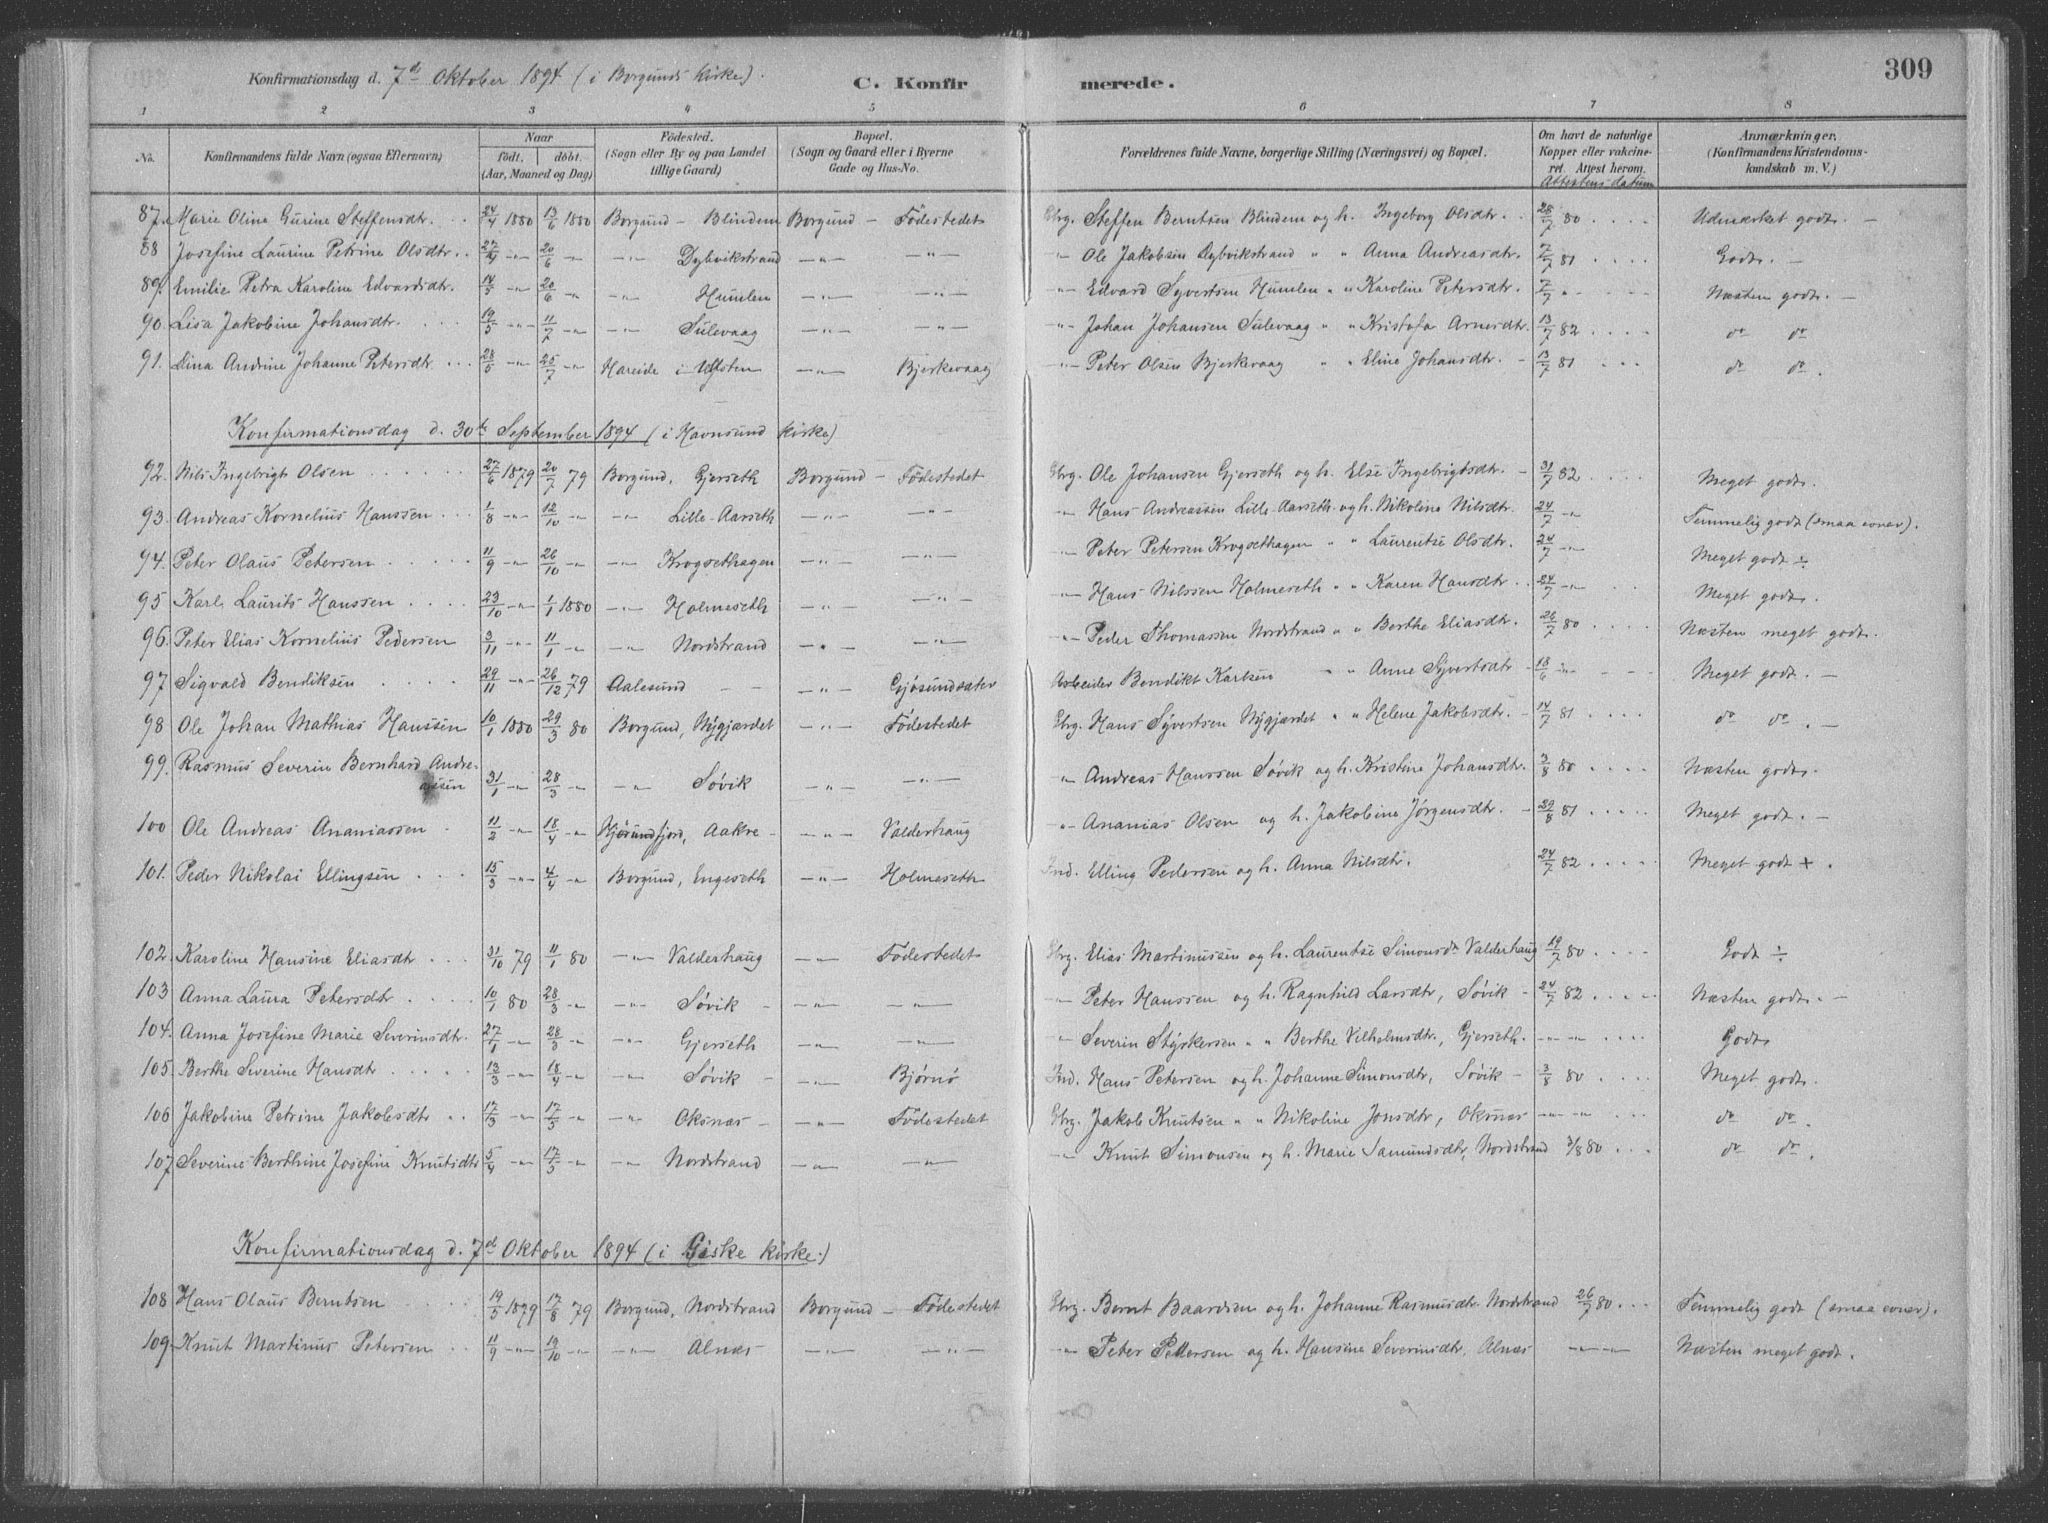 Konfirmationsdag d. 7de Oktober 1894 (i Borgunds Kirke). C. Konfirmerede. 309
1 2 3 4 5 6 7 8
No. Konfirmandens fulde Navn (ogsaa Efternavn) Naar födt. döbt. (Aar, Maaned og Dag) Födested. (Sogn eller By og paa Landet tillige Gaard) Bopæl. (Sogn og Gaard eller i Byerne Gade og Hus-No. Forældrenes fulde Navne, borgerlige Stilling (Næringsvei) og Bopæl. Om havt de naturlige Kopper eller vakcineret. Attest herom. Attestens datum Anmærkninger. (Konfirmandens Kristendomskundskab m. V.)
87. Marie Oline Gurine Steffensdtr. 24/4 1880 13/6 1880 Borgund - Blindem Borgund - Födestedet Gbrg. Steffen Berntsen Blindem og h. Ingeborg Olsdtr. 28/7 80 Udmærket godt. -
88 Josefine Laurine Petrine Olsdtr. 27/4 -"- 20/6 -"- -"- Dybvikstrand -"- -"- -"- Ole Jakobsen Dybvikstrand " " Anna Andreasdtr. 7/7 81 Godt. -
89. Emilie Petra Karoline Edvardsdtr. 14/5 -"- 20/6 -"- -"- Humlen -"- -"- -"- Edvard Syvertsen Humlen " " Karoline Petersdtr. 7/7 " Næsten godt. -
90. Lisa Jakobine Johansdtr. 19/5 -"- 11/7 -"- -"- Sulevaag -"- -"- -"- Johan Johansen Sulevaag " " Kristofa Arnesdtr. 13/7 82 do do
91. Dina Andrine Johanne Petersdtr. 28/5 -"- 25/7 -"- Hareide i Ulsten -"- Bjerkevaag -"- Peter Olsen Bjerkevaag " " Eline Johansdtr. - 13/7 81 do do.
Konfirmationsdag d. 30te September 1894 (i Havnsund kirke)
92. Nils Ingebrigt Olsen 27/6 1879 20/7 79 Borgund, Gjerseth Borgund - Födestedet Gbrg. Ole Johansen Gjerseth og h. Else Ingebrigtsdtr. - 31/7 82 Meget godt.
93. Andreas Kornelius Hanssen 1/8 -"- 12/10 -"- -"- Lille-Aarseth -"- -"- -"- Hans Andreassen Lille-Aarseth og h. Nikoline Nilsdtr. 24/7 -"- Temmelig godt (smaa evner).
94. Peter Olaus Petersen 11/9 -"- 26/10 -"- -"- Krogsethagen -"- -"- -"- Peter Petersen Krogsethagen " " Laurentse Olsdtr. 24/7 -"- Meget godt ÷
95 Karl Laurits Hanssen 23/10 -"- 1/1 1880 -"- Holmeseth -"- -"- -"- Hans Nilssen Holmeseth " " Karen Hansdtr. 24/7 -"- Meget godt.
96. Peter Elias Kornelius Pedersen 3/11 -"- 11/1 -"- -"- Nordstrand -"- -"- -"- Peder Thomassen Nordstrand " " Berthe Eliasdtr. 26/7 80 Næsten meget godt.
97 Sigvald Bendiksen 29/11 -"- 26/12 79 Aalesund - -"- Gjøsundsæter Arbeider Bendikt Karlsen " " Anne Syvertsdtr - 18/6 -"- Meget godt. -
98 Ole Johan Mathias Hanssen 10/1 1880 29/3 80 Borgund, Nygjærdet -"- Födestedet Gbrg. Hans Syvertsen Nygjærdet " " Helene Jakobsdtr. - 14/7 81 do do. -
99. Rasmus Severin Bernhard Andreassen 31/1 -"- 28/3 -"- -"- Søvik -"- -"- -"- Andreas Hanssen Søvik og h. Kristine Johansdtr. 3/8 80 Næsten godt.
100 Ole Andreas Ananiassen 11/2 -"- 18/4 -"- Hjørundfjord, Aakre - -"- Valderhaug -"- Ananias Olsen og h. Jakobine Jørgensdtr. - 29/8 81 Meget godt. -
101. Peder Nikolai Ellingsen 15/3 -"- 4/4 -"- Borgund, Engeseth -"- Holmeseth Ind. Elling Pedersen og h. Anna Nilsdtr. 24/7 82 Meget godt +.
102. Karoline Hansine Eliasdtr 31/10 79 11/1 80 -"- Valderhaug -"- Födestedet Gbrg. Elias Martinussen og h. Laurentse Simonsdtr Valderhaug 19/7 80 Godt ÷
103 Anna Laura Petersdtr 10/1 80 28/3 -"- -"- Søvik - -"- -"- -"- Peter Hanssen og h. Ragnhild Larsdtr, Søvik - 24/7 82 Næsten godt. -
104. Anna Josefine Marie Severinsdtr. 27/1 -"- 28/3 -"- -"- Gjerseth -"- -"- -"- Severin Styrkersen " " Berthe Vilhelmsdtr., Gjerseth. -"- -"- Godt
105. Berthe Severine Hansdtr 13/3 -"- 18/4 -"- -"- Søvik - -"- Bjørnø Ind. Hans Petersen og h. Johanne Simonsdtr, Søvik - 3/8 80 Meget godt.
106 Jakobine Petrine Jakobsdtr 17/3 -"- 17/5 -"- -"- Oksnæs - -"- Födestedet Gbrg. Jakob Knutsen " " Nikoline Jonsdtr, Oksnæs -"- -"- do do.
107 Severine Berthine Josefine Knutsdtr 5/4 -"- 17/5 -"- -"- Nordstrand -"- -"- -"- Knut Simonsen og h. Marie Samundsdtr, Nordstrand 3/8 80 do do.
Konfirmationsdag d. 7de Oktober 1894 (i Giske kirke.)
108 Hans Olaus Berntsen 19/5 1879 17/8 79 Borgund, Nordstrand Borgund - Födestedet Gbrg. Bernt Baardsen og h. Johanne Rasmusdtr. Nordstrand 26/7 80 Temmelig godt (smaa evner).
109. Knut Martinus Petersen 11/9 -"- 19/10 -"- -"- Alnæs -"- -"- -"- Peter Pettersen og h. Hansine Severinsdtr. Alnæs -"- -"- Næsten meget godt.